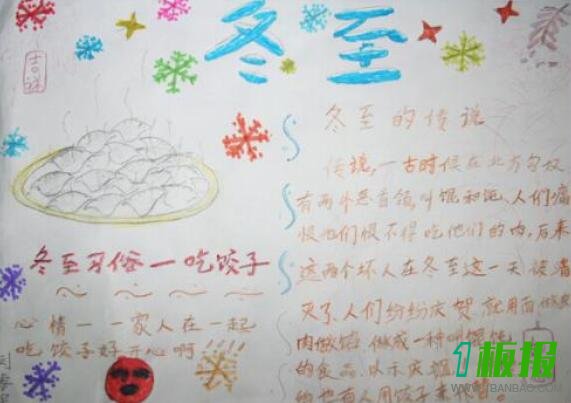 冬至
吉祥
冬至的传说
传说,一古时候在北方匈奴
有两个恶首领,叫馄和饨,人们痛
恨他们恨不得吃他们的肉,后来
这两个坏人在冬至这一天被消
灭了,人们纷纷庆贺,就用面做皮
肉做馅,做成一种叫馄饨
的食品,以示庆祝
的也有人用饺子来代替。
冬至习俗一吃饺子
心情一一家人在一起
吃饺子好开心啊!!!!
1板报
WWW.1BANBAO.COM